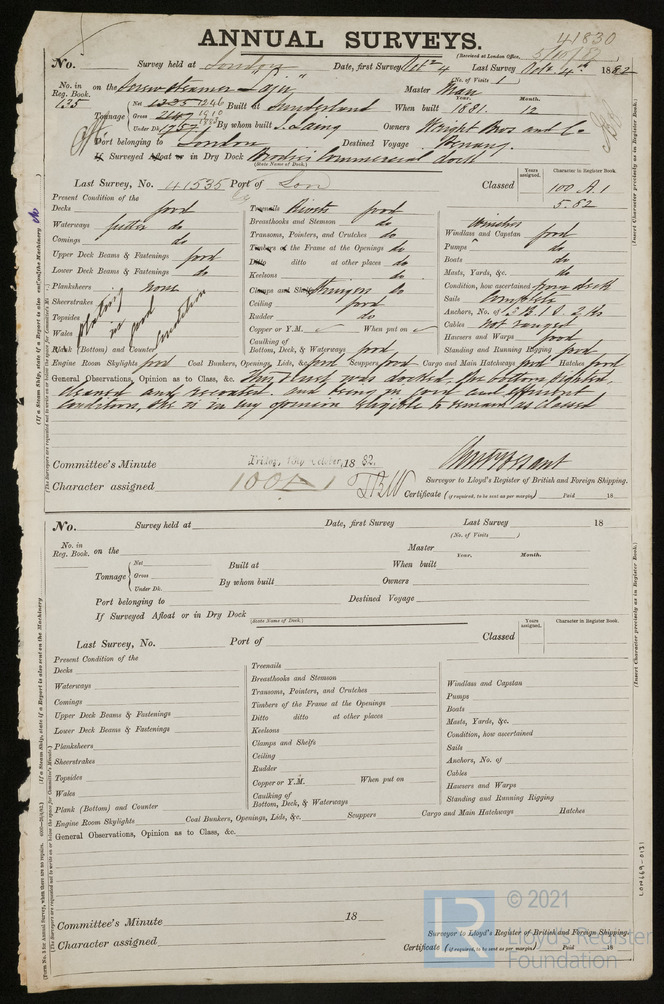 41830
ANNUAL SURVEYS.
(Received at London Office, 5/10/82)
No. Survey held at London Date, first Survey Oct 2 Last Survey Oct 4th 1882
(No. of Visits)
No. in Reg. Book. 135 on the Screw Steamer Master
Year. Month.
Tonnage Net 1246 Gross 1910 Under Dk. Built at Sunderland When built 1881. 12
By whom built J. Laing Owners Wright Bros and Co
Port belonging to London Destined Voyage Penang.
If Surveyed Afloat or in Dry Dock Commercial dock
(State Name of Dock.)
Last Survey, No. 41535 Port of Lon Classed Years assigned. Character in Register Book. 100 A.1
5.82
Present Condition of the
Decks good
Waterways do
Comings do
Upper Deck Beams & Fastenings good
Lower Deck Beams & Fastenings do
Planksheers none
Sheerstrakes
Topsides
Wales
Plank (Bottom) and Counter
plating in good condition
Treenails Rivets good
Breasthooks and Stemson do
Transoms, Pointers, and Crutches do
Timbers of the Frame at the Openings do
Ditto ditto at other places do
Keelsons do
Clamps and Shelfs Stringers do
Ceiling good
Rudder do
Copper or Y.M. When put on
Caulking of Bottom, Deck, & Waterways good
Winches
Windlass and Capstan good
Pumps do
Boats do
Masts, Yards, &c. do
Condition, how ascertained from deck
Sails Complete
Anchors, No. of 3 B. 1 S. 2 K
Cables not ranged
Hawsers and Warps good
Standing and Running Rigging good
Engine Room Skylights good Coal Bunkers, Openings, Lids, &c. good Scuppers good Cargo and Main Hatchways good Hatches good
General Observations, Opinion as to Class, &c. This vessel was docked, the bottom
cleaned and recoated. and being in good and efficient
condition, she is in my opinion eligible to remain as classed
Committee's Minute Friday, 13th October, 1882.
Character assigned 100 A 1
Surveyor to Lloyd's Register of British and Foreign Shipping.
Certificate (if required, to be sent as per margin) Paid 18
No. Survey held at Date, first Survey Last Survey 18
(No. of Visits)
No. in Reg. Book. on the Master
Year. Month.
Tonnage Net Gross Under Dk. Built at When built
By whom built Owners
Port belonging to Destined Voyage
If Surveyed Afloat or in Dry Dock
(State Name of Dock.)
Last Survey, No. Port of Classed Years assigned. Character in Register Book.
Present Condition of the
Decks
Waterways
Comings
Upper Deck Beams & Fastenings
Lower Deck Beams & Fastenings
Planksheers
Sheerstrakes
Topsides
Wales
Plank (Bottom) and Counter
Treenails
Breasthooks and Stemson
Transoms, Pointers, and Crutches
Timbers of the Frame at the Openings
Ditto ditto at other places
Keelsons
Clamps and Shelfs
Ceiling
Rudder
Copper or Y.M. When put on
Caulking of Bottom, Deck, & Waterways
Windlass and Capstan
Pumps
Boats
Masts, Yards, &c.
Condition, how ascertained
Sails
Anchors, No. of
Cables
Hawsers and Warps
Standing and Running Rigging
Engine Room Skylights Coal Bunkers, Openings, Lids, &c. Scuppers Cargo and Main Hatchways Hatches
General Observations, Opinion as to Class, &c.
Committee's Minute 18
Character assigned
Surveyor to Lloyd's Register of British and Foreign Shipping.
Certificate (if required, to be sent as per margin) Paid 18
(Insert Character precisely as in Register Book.)
(Insert Character precisely as in Register Book.)
LON669-0131
LR © 2021
Lloyd's Register
Foundation